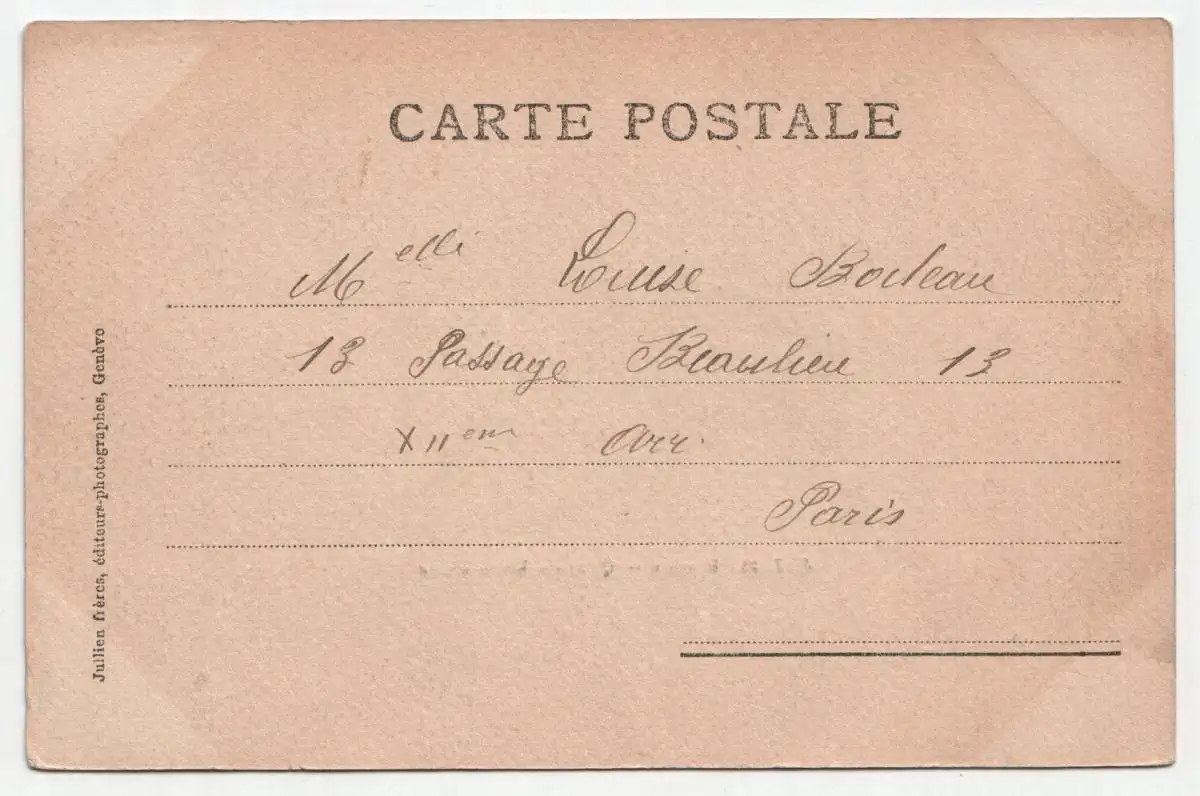 CARTE POSTALE
Melle Louise Boileau
13 Passage Beaulieu 13
XIIem Arr.
Paris
Jullien frères, éditeurs-photographes, Genève